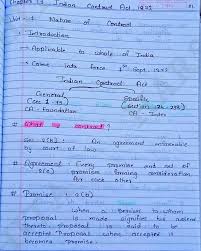 Chapter 1 Indian Contract Act 1872
Unit - 1 Nature of Contract
Introduction
→ Applicable to whole of India
→ Came into force 1st Sept. 1872
Indian Contract Act
General Specific
(Sec 1 - 75)
CA - Foundation CA - Inter
# What is contract?
Sec 2(h) : An agreement enforceable
by court of law
# Agreement : Every promise and set of
2(e) promises forming consideration
for each other
# Promise : 2(b)
When a person to whom
proposal is made signifies his assent
thereto proposal is said to be
accepted. Proposal when accepted it
becomes promise.